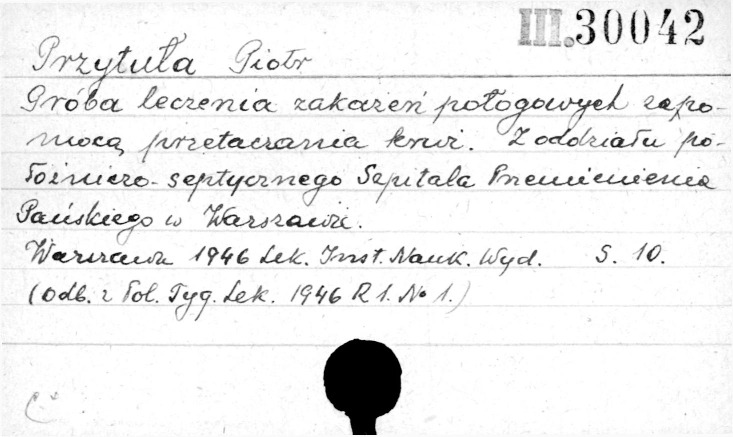 III.30042
Przytuła Piotr
Próba leczenia zakażeń połogowych zapo-
mocą przetaczania krwi. Z oddziału po-
łożniczo-septycznego Szpitala Przemienienia
Pańskiego w Warszawie.
Warszawa 1946 Lek. Inst. Nauk. Wyd. S. 10.
(Odb. z Pol. Tyg. Lek. 1946 R 1. № 1.)